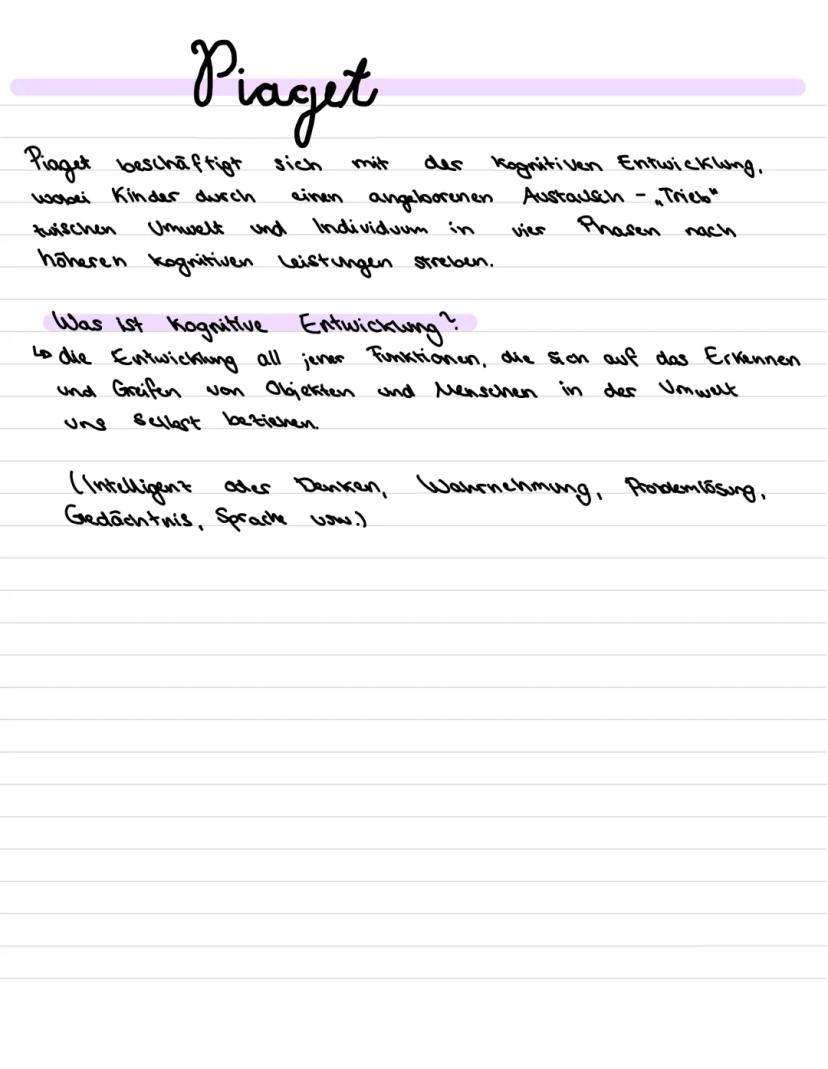 Piaget
Piaget beschäftigt sich mit der kognitiven Entwicklung,
wobei Kinder durch einen angeborenen Austausch - „Trieb"
zwischen Umwelt und Individuum in vier Phasen nach
höheren kognitiven Leistungen streben.
Was ist kognitive Entwicklung?
↳ die Entwicklung all jener Funktionen, die sich auf das Erkennen
und Greifen von Objekten und Menschen in der Umwelt
uns selbst beziehen.
(Intelligenz oder Denken, Wahrnehmung, Problemlösung,
Gedächtnis, Sprache usw.)